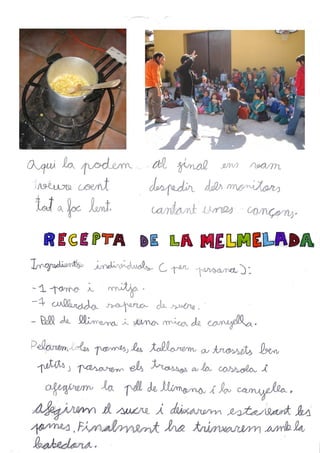 Aquí la podem
veure coent
tot a foc lent.
Al final ens vam
despedir dels monitors
cantant unes cançons.
RECEPTA DE LA MELMELADA
Ingredients individuals (per persona):
-1 poma i mitja.
-1 cullerada sopera de sucre.
- Pell de llimona i una mica de canyella.
Pelarem les pomes, les tallarem a trossets ben
petits, pasarem els trossos a la cassola i
afegirem la pell de llimona i la canyella.
Afegirem el sucre i deixarem estovant les
pomes. Finalment ho trinxarem amb la
batedora.